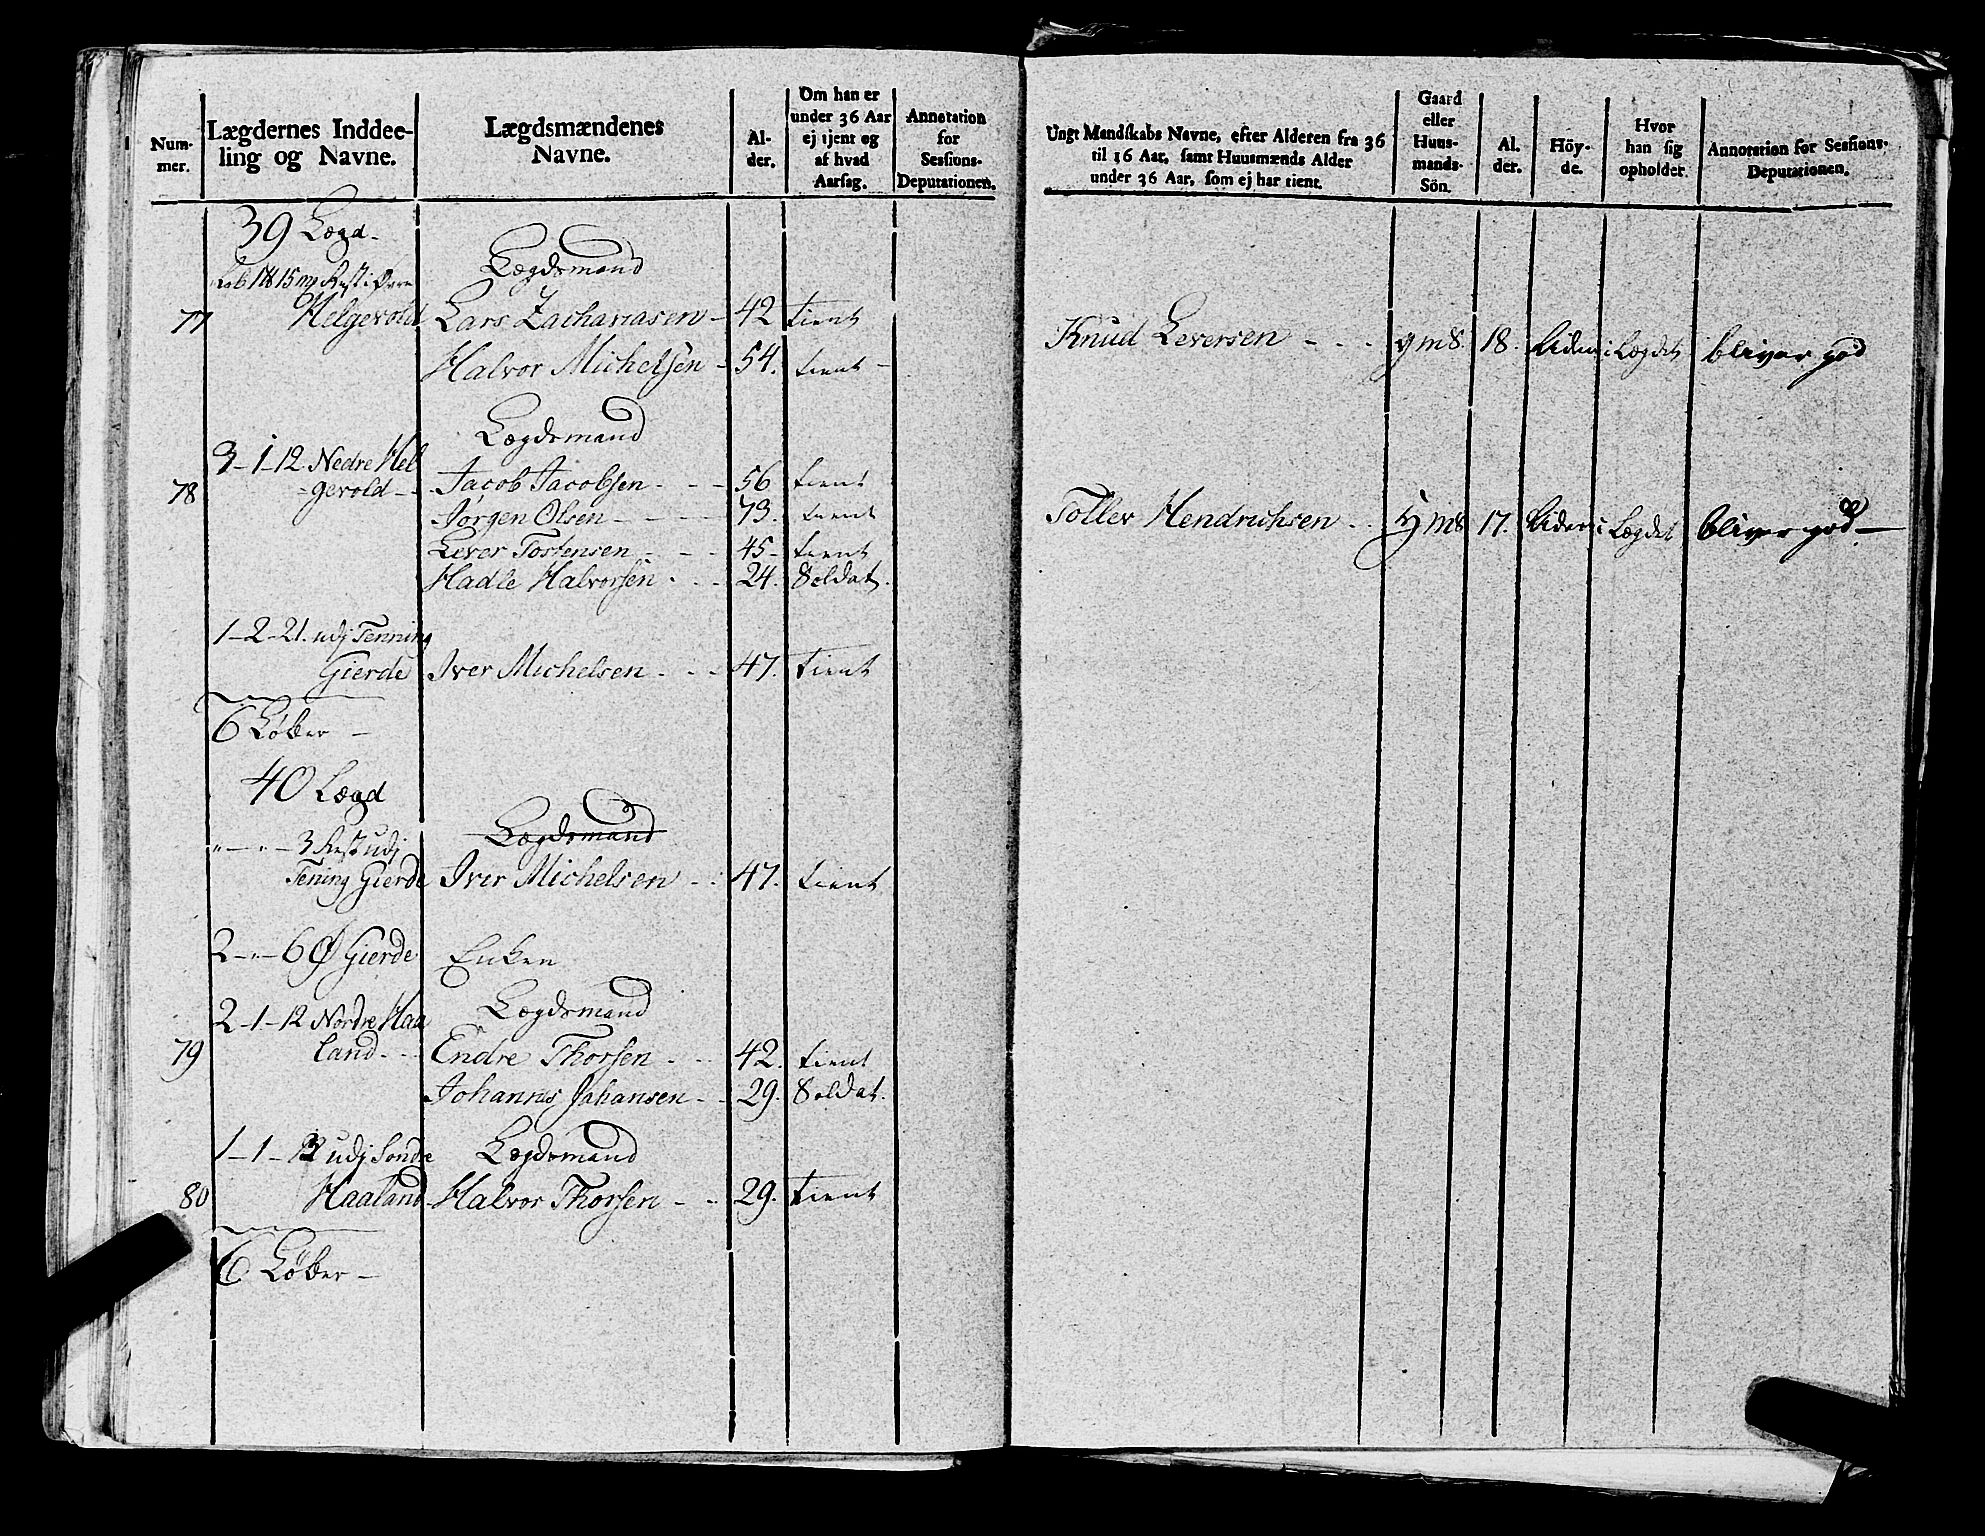 Num-
mer.
Lægdernes Inddee-
ling og Navne.
Lægdsmændenes
Navne.
Al-
der.
Om han er
under 36 Aar
ej tjent og
af hvad
Aarsag.
Annotation
for
Sessions-
Deputationen.
39 Lægd.
Rest i Øvre
Lægdsmand
77 Helgevold Lars Zachariasen - 42 tient
Halvor Michelsen - 54. tient -
Lægdsmand
3-1-12 Nedre Hel
78 -gevold - Jacob Jacobsen - 56 tient
Jørgen Olsen - 73. tient
Lever Tostensen - 45- tient
Hadle Halvorsen - 24. Soldat.
1-2-21. udj Tenning
Gierde Iver Michelsen - 47. tient
6 Løber -
40 Lægd
"-"-3 Rest udj Lægdsmand
Tening Gierde Iver Michelsen - 47. tient
2-"-6 Ø Gierde Enken
2-1-12 Nordre Haa Lægdsmand
79 land - Endre Thorsen - 42. tient
Johannis Johansen - 29. Soldat.
1-1- udj Søndre Lægdsmand
80 Haaland Halvor Thorsen - 29. tient
6 Løber -
Ungt Mandskabs Navne, efter Alderen fra 36
til 16 Aar, samt Huusmænds Alder
under 36 Aar, som ej har tient.
Gaard
eller
Huus-
mands-
Sön.
Al.
der.
Höy-
de.
Hvor
han sig
opholder.
Annotation for Sessions-
Deputationen.
Knud Leversen - - - gms. 18. Liden i Lægdet bliver god
Tollev Hendrichsen - - gms 17. Liden i Lægdet bliver god -